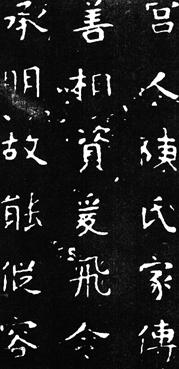 宮令陳氏家傳
善相資爰飛令
承明故能従容